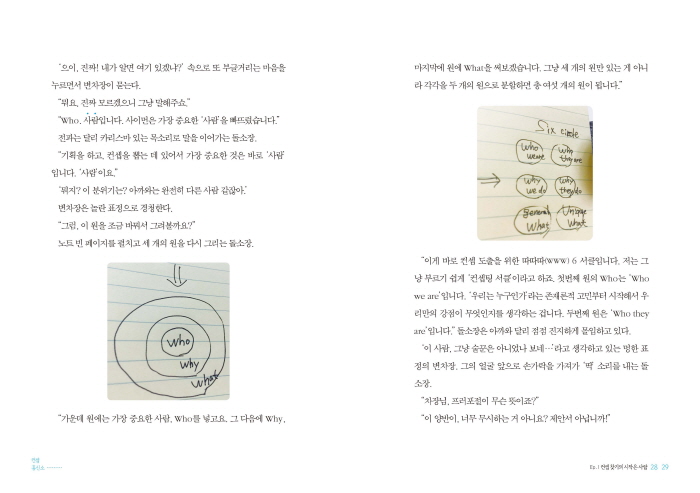 ‘으이, 진짜! 내가 알면 여기 있겠냐?’ 속으로 또 부글거리는 마음을
누르면서 변차장이 묻는다.
“뭐요, 진짜 모르겠으니 그냥 말해주쇼.”
“Who, 사람입니다. 사이먼은 가장 중요한 ‘사람’을 빠뜨렸습니다.”
전과는 달리 카리스마 있는 목소리로 말을 이어가는 돌소장.
“기획을 하고, 컨셉을 뽑는 데 있어서 가장 중요한 것은 바로 ‘사람’
입니다. ‘사람’이요.”
‘뭐지? 이 분위기는? 아까와는 완전히 다른 사람 같잖아.’
변차장은 놀란 표정으로 경청한다.
“그럼, 이 원을 조금 바꿔서 그려볼까요?”
노트 빈 페이지를 펼치고 세 개의 원을 다시 그리는 돌소장.
Who
Why
What
“가운데 원에는 가장 중요한 사람, Who를 넣고요, 그 다음에 Why,
컨셉
흥신소
마지막에 원에 What을 써보겠습니다. 그냥 세 개의 원만 있는 게 아니
라 각각을 두 개의 원으로 분할하면 총 여섯 개의 원이 됩니다.”
Six circle
Who we are
Who they are
Why we do
Why they do
General What
Unique What
“이게 바로 컨셉 도출을 위한 따따따(WWW) 6 서클입니다. 저는 그
냥 부르기 쉽게 ‘컨셉팅 서클’이라고 하죠. 첫번째 원의 Who는 ‘Who
we are’입니다. ‘우리는 누구인가’라는 존재론적 고민부터 시작해서 우
리만의 강점이 무엇인지를 생각하는 겁니다. 두번째 원은 ‘Who they
are’입니다.” 돌소장은 아까와 달리 점점 진지하게 몰입하고 있다.
‘이 사람, 그냥 술꾼은 아니었나 보네…’라고 생각하고 있는 멍한 표
정의 변차장. 그의 얼굴 앞으로 손가락을 가져가 ‘딱’ 소리를 내는 돌
소장.
“차장님, 프러포절이 무슨 뜻이죠?”
“이 양반이, 너무 무시하는 거 아니요? 제안서 아닙니까!”
Ep.1 컨셉 찾기의 시작은 사람 28 29